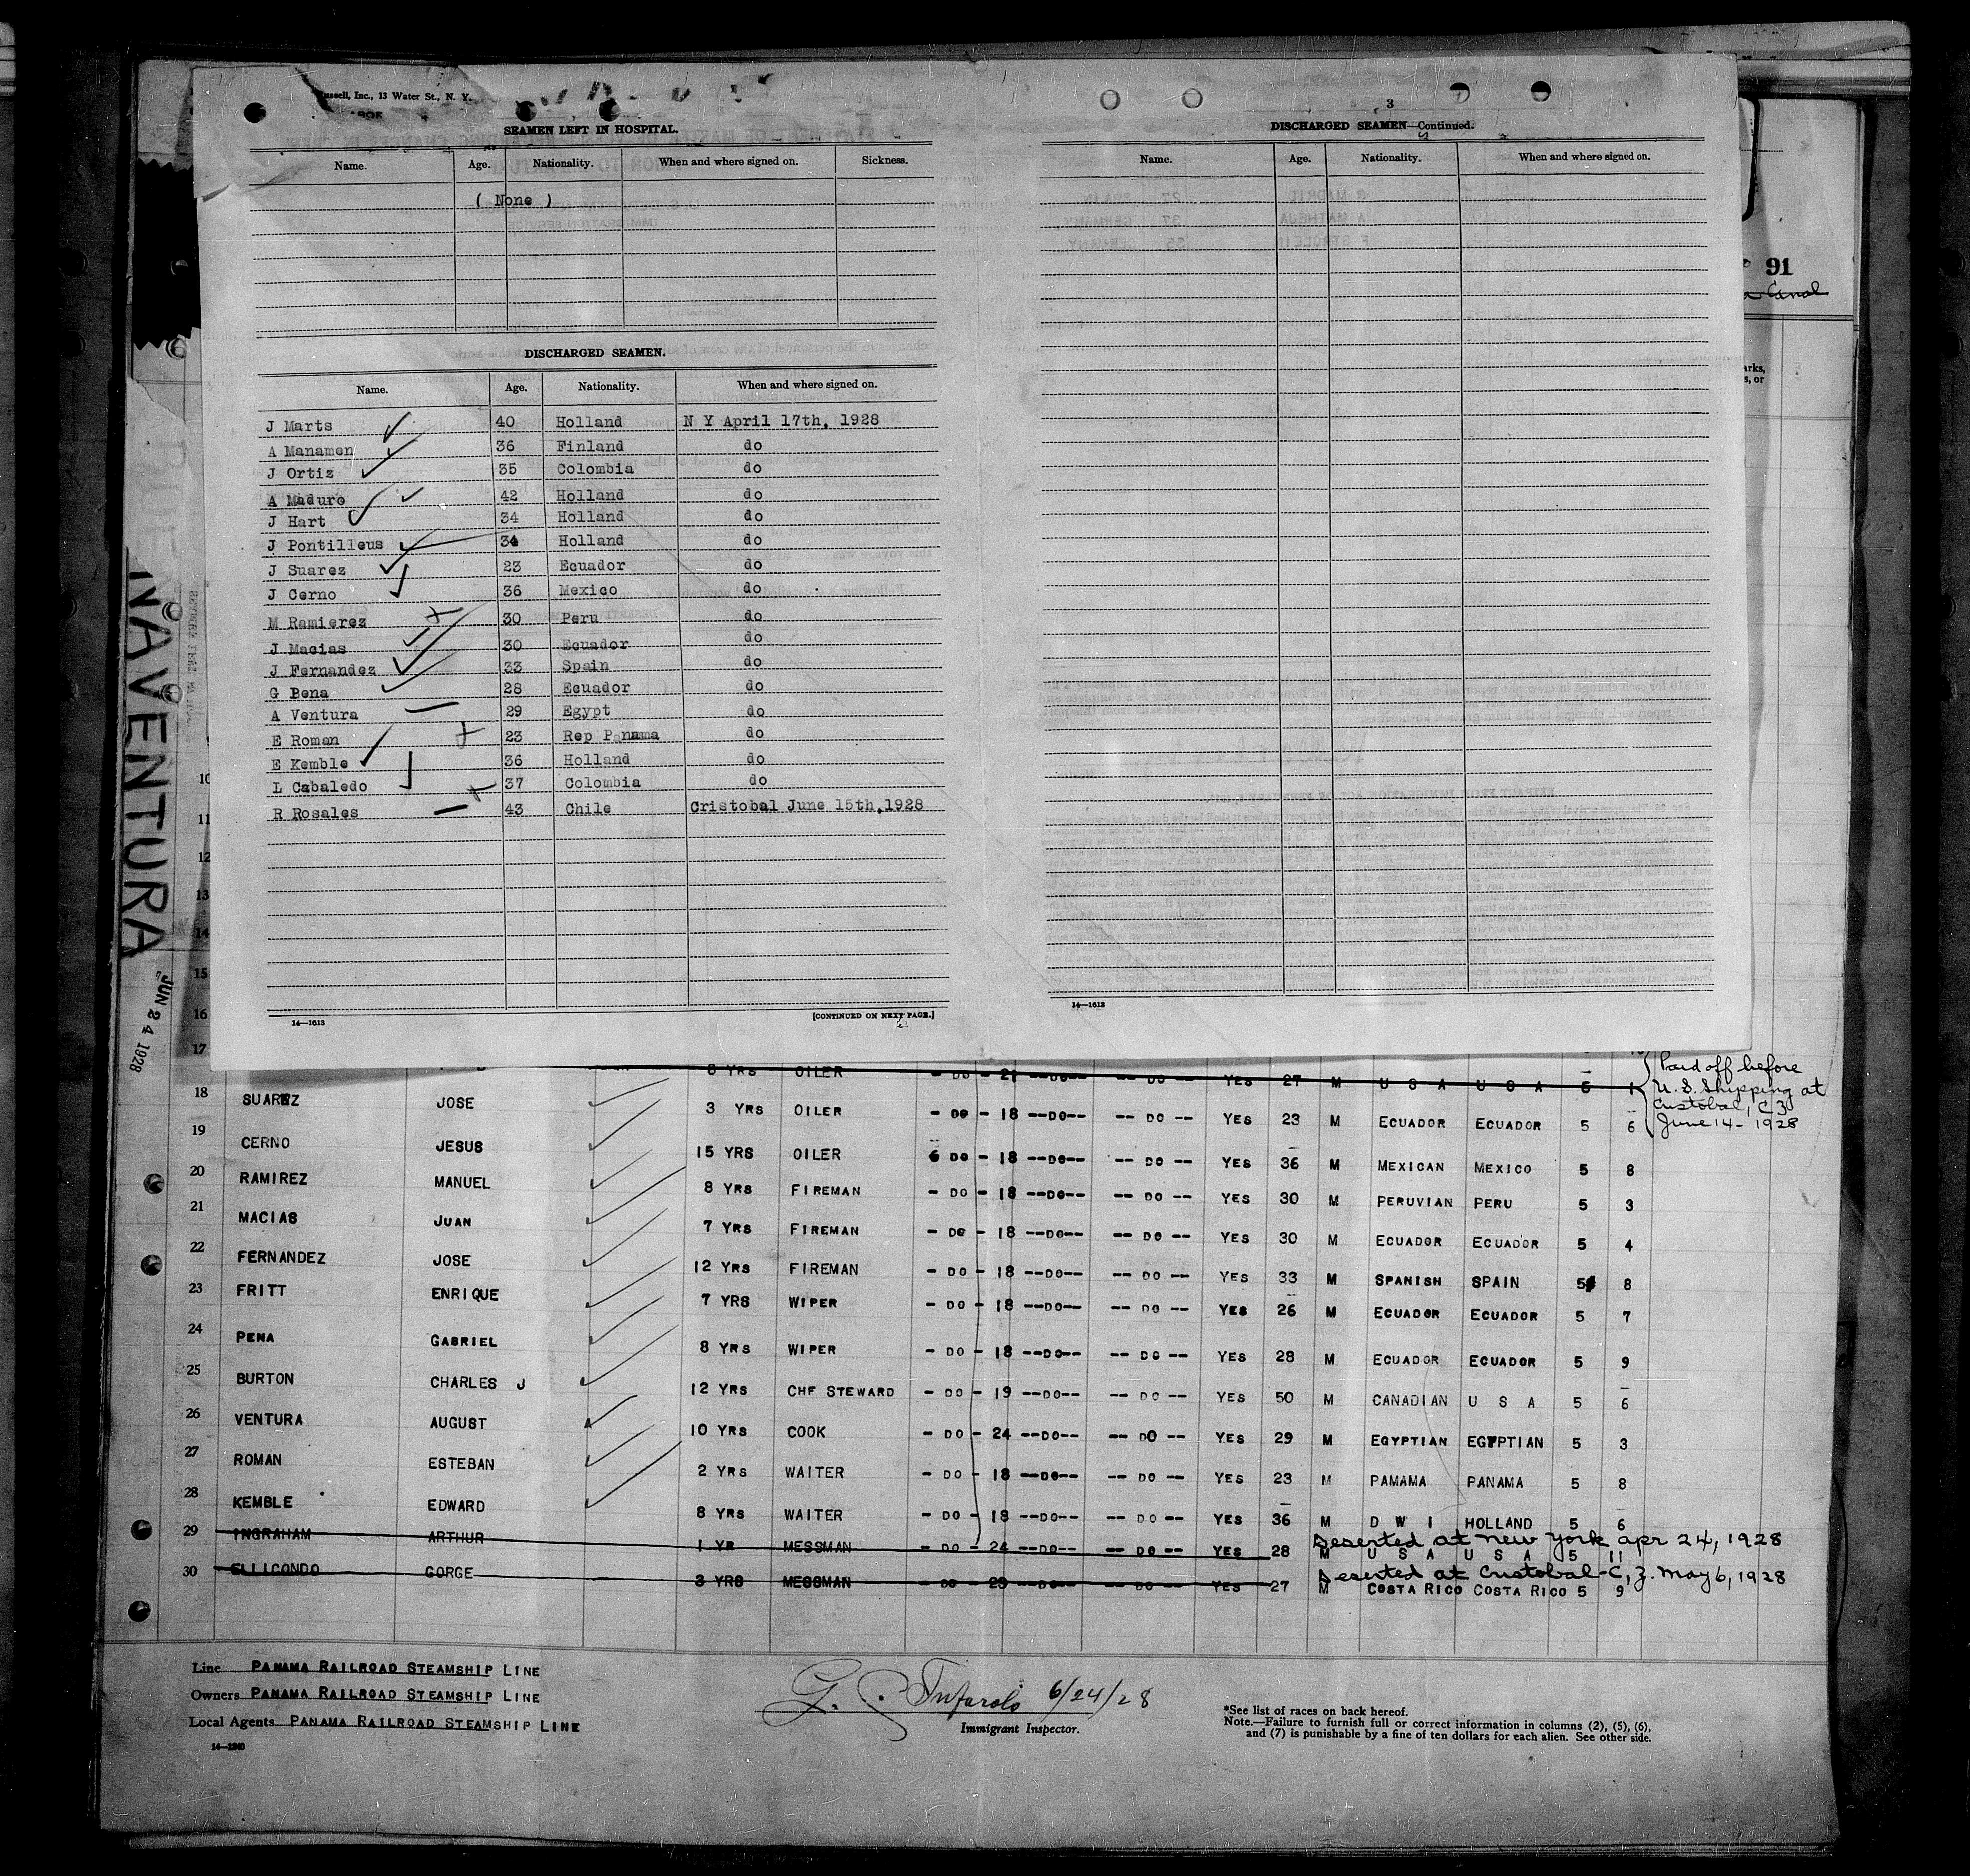 ussell, Inc., 13 Water St., N. Y.
SEAMEN LEFT IN HOSPITAL.
Name. Age. Nationality. When and where signed on. Sickness.
( None )
DISCHARGED SEAMEN.
Name. Age. Nationality. When and where signed on.
J Marts 40 Holland N Y April 17th, 1928
A Manamen 36 Finland do
J Ortiz 35 Colombia do
A Maduro 42 Holland do
J Hart 34 Holland do
J Pontilleus 34 Holland do
J Suarez 23 Ecuador do
J Cerno 36 Mexico do
M Ramierez 30 Peru do
J Macias 30 Ecuador do
J Fernandez 33 Spain do
G Pena 28 Ecuador do
A Ventura 29 Egypt do
E Roman 23 Rep Panama do
E Kemble 36 Holland do
L Cabaledo 37 Colombia do
R Rosales 43 Chile Cristobal June 15th,1928
14—1613 [CONTINUED ON NEXT PAGE.]
3
DISCHARGED SEAMEN—Continued.
Name. Age. Nationality. When and where signed on.
14—1613
91
a Canal
arks,
s, or
NAVENTURA
JUN 24 1928
10
11
12
13
14
15
16
17 8 YRS OILER - DO - 21 --DO-- -- DO -- YES 27 M U S A U S A 5 1
Paid off before
U. S. Shipping at
Cristobal, C Z
June 14 - 1928
18 SUAREZ JOSE 3 YRS OILER - DO - 18 --DO-- -- DO -- YES 23 M ECUADOR ECUADOR 5 6
19 CERNO JESUS 15 YRS OILER 6 DO - 18 --DO-- -- DO -- YES 36 M MEXICAN MEXICO 5 8
20 RAMIREZ MANUEL 8 YRS FIREMAN - DO - 18 --DO-- -- DO -- YES 30 M PERUVIAN PERU 5 3
21 MACIAS JUAN 7 YRS FIREMAN - DO - 18 --DO-- -- DO -- YES 30 M ECUADOR ECUADOR 5 4
22 FERNANDEZ JOSE 12 YRS FIREMAN - DO - 18 --DO-- -- DO -- YES 33 M SPANISH SPAIN 5 8
23 FRITT ENRIQUE 7 YRS WIPER - DO - 18 --DO-- -- DO -- YES 26 M ECUADOR ECUADOR 5 7
24 PENA GABRIEL 8 YRS WIPER - DO - 18 --DO-- -- DO -- YES 28 M ECUADOR ECUADOR 5 9
25 BURTON CHARLES J 12 YRS CHF STEWARD - DO - 19 --DO-- -- DO -- YES 50 M CANADIAN U S A 5 6
26 VENTURA AUGUST 10 YRS COOK - DO - 24 --DO-- -- DO -- YES 29 M EGYPTIAN EGYPTIAN 5 3
27 ROMAN ESTEBAN 2 YRS WAITER - DO - 18 --DO-- -- DO -- YES 23 M PAMAMA PANAMA 5 8
28 KEMBLE EDWARD 8 YRS WAITER - DO - 18 --DO-- -- DO -- YES 36 M D W I HOLLAND 5 6
Deserted at New York apr 24, 1928
29 INGRAHAM ARTHUR 1 YR MESSMAN - DO - 24 --DO-- -- DO -- YES 28 M U S A U S A 5 11
Deserted at Cristobal C, Z. May 6, 1928
30 ELLICONDO GORGE 3 YRS MESSMAN - DO - 23 --DO-- -- DO -- YES 27 M COSTA RICO COSTA RICO 5 9
Line PANAMA RAILROAD STEAMSHIP LINE
Owners PANAMA RAILROAD STEAMSHIP LINE
Local Agents PANAMA RAILROAD STEAMSHIP LINE
14—1240
6/24/28
Immigrant Inspector.
*See list of races on back hereof.
Note.—Failure to furnish full or correct information in columns (2), (5), (6),
and (7) is punishable by a fine of ten dollars for each alien. See other side.